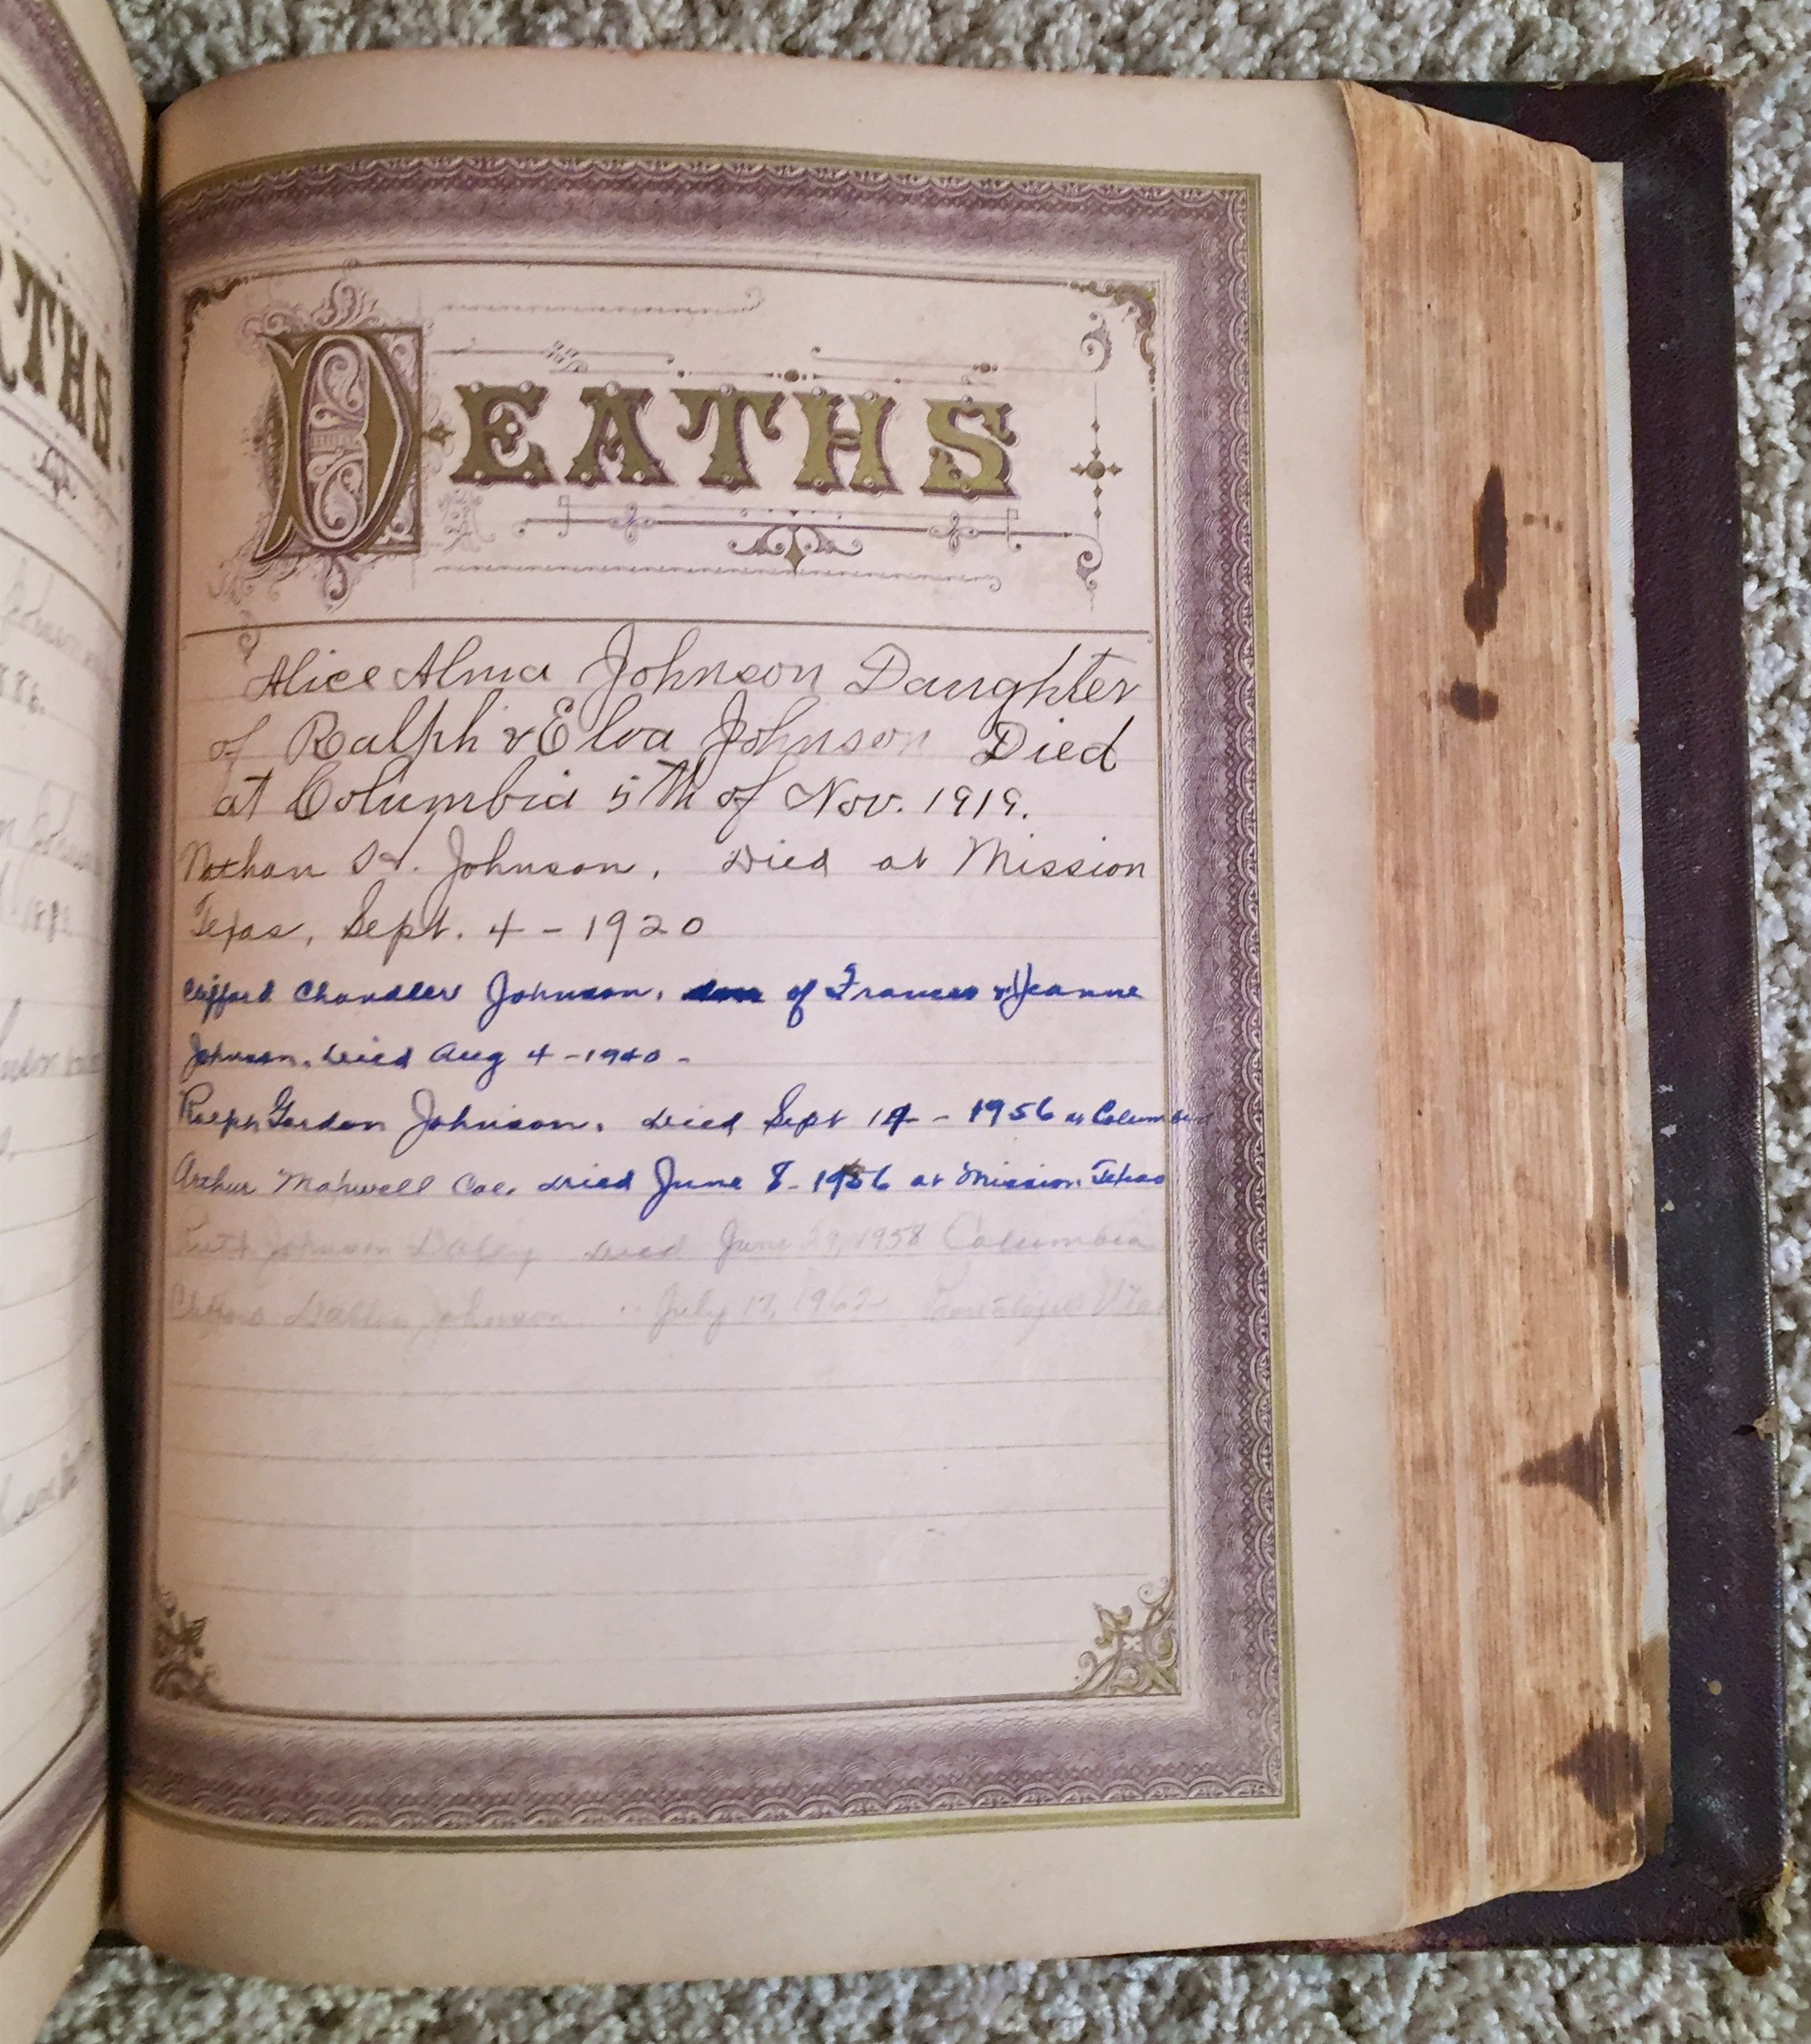 RTHS.
DEATHS
Alice Alma Johnson Daughter
of Ralph & Elva Johnson Died
at Columbia 5th of Nov. 1919.
Nathan Johnson, Died at Mission
Texas, Sept. 4 - 1920
Clifford Chandler Johnson, son of Frances & Jeanne
Johnson. Died Aug 4 - 1940 -
Ralph Gordon Johnson. Died Sept 14 - 1956 at Columbia
Arthur Maxwell Coe. Died June 8 - 1956 at Mission Texas
Ruth Johnson Died June 29, 1958 Columbia
Johnson " July 1962